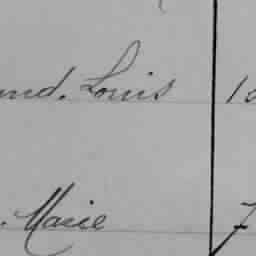 und. Louis 10
. Marie 7